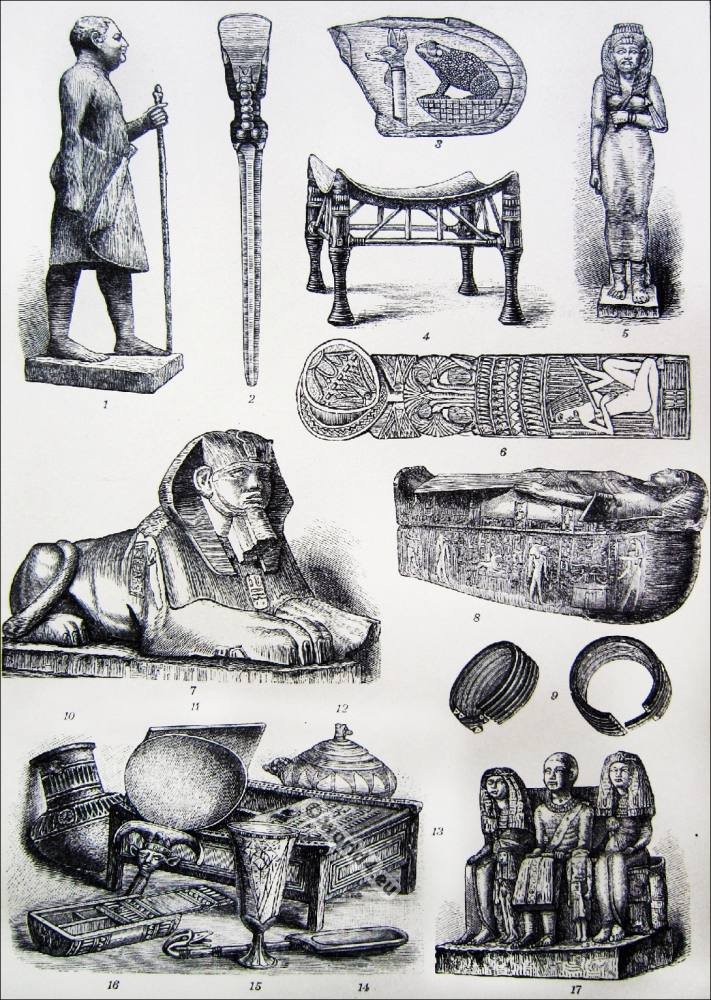 3
4 5
1 2
6
8
7 9
10 11 12
13
16 15 14 17